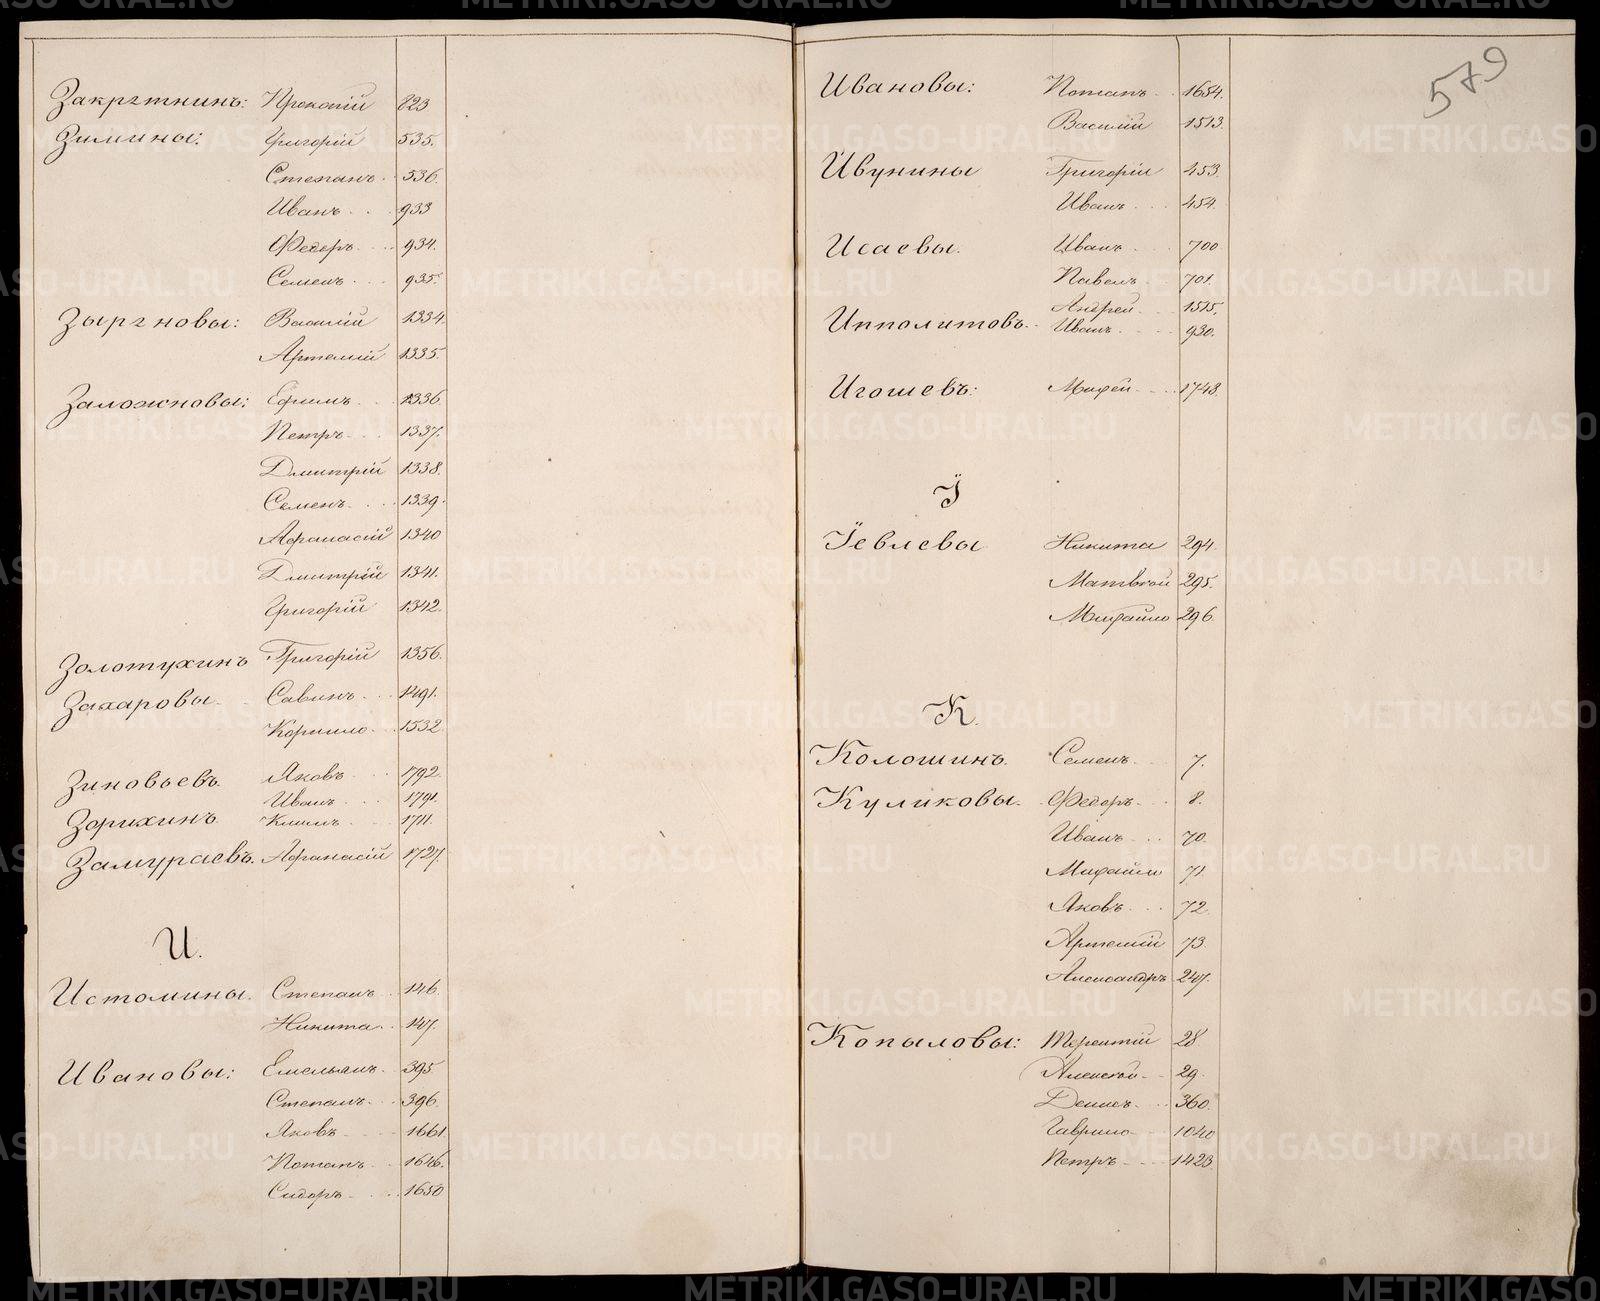 Закрятнинъ: Прокопій 823
Зимины: Григорій 535.
Степанъ 536.
Иванъ 933
Федоръ 934.
Семенъ 935.
Зыряновы: Василій 1334.
Артемій 1335.
Заложновы: Ефимъ 1336.
Петръ 1337.
Дмитрій 1338.
Семенъ 1339.
Афанасій 1340
Дмитрій 1341.
Григорій 1342.
Золотухинъ Григорій 1356.
Захаровы Савинъ 1491.
Корнило 1532.
Зиновьевъ Яковъ 1792.
Иванъ 1791.
Зорихинъ Климъ 1711.
Замураевъ. Афанасій 1727.
И.
Истомины. Степанъ 146.
Никита 147.
Ивановы: Емельянъ 395
Степанъ 396.
Яковъ 1661.
Потапъ 1646.
Сидоръ 1650
579
Ивановы: Потапъ 1654.
Василій 1513.
Ивунины Григорій 453.
Иванъ 454.
Исаевы. Иванъ 700
Павелъ 701.
Андрей 1515.
Ипполитовъ Иванъ 930.
Игошевъ: Мифей 1743.
Ї
Їевлевы Никита 294.
Матвѣй 295.
Михайло 296.
К.
Колошинъ. Семенъ 7.
Куликовы. Федоръ 8.
Иванъ 70.
Михайло 71.
Яковъ 72.
Артемій 73.
Александръ 247.
Копыловы: Терентій 28
Алексѣй 29.
Денисъ 360.
Гаврило 1040
Петръ 1423
METRIKI.GASO-URAL.RU